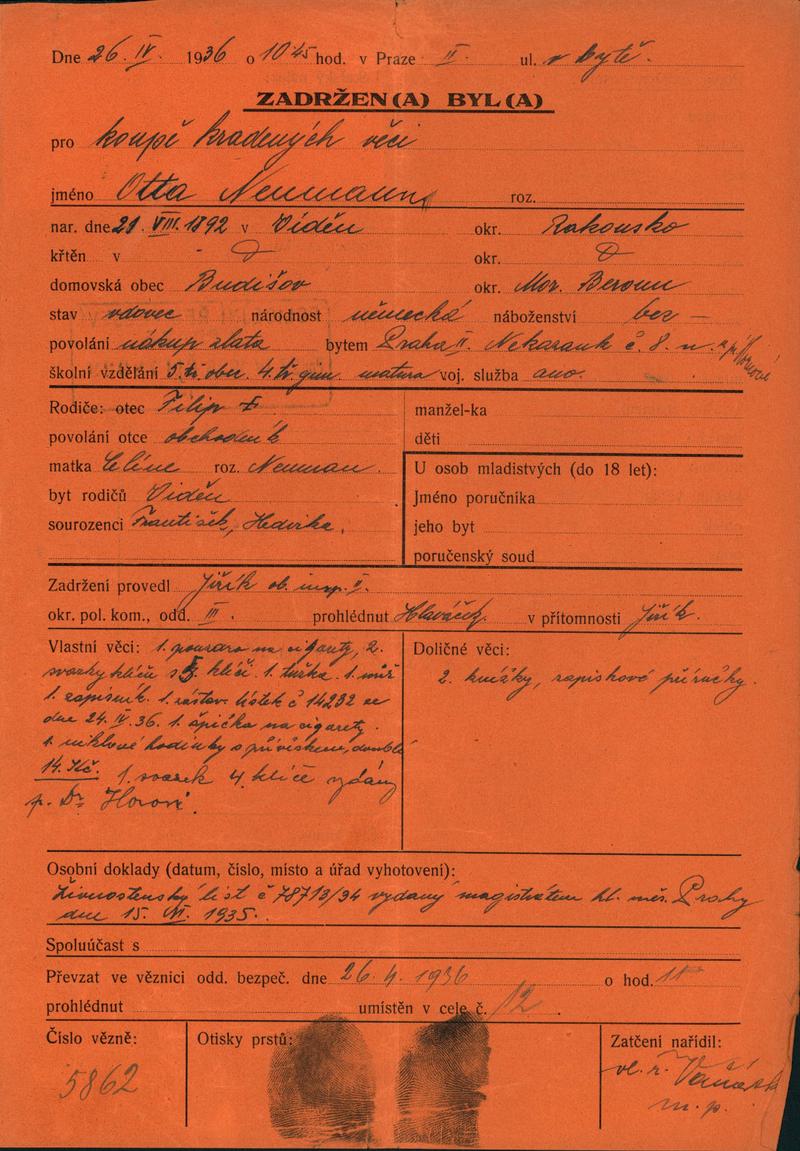 Dne 26. IV. 1936 o 10 45 hod. v Praze II. ul. v bytě.
ZADRŽEN(A) BYL(A)
pro koupě kradených věcí
jméno Otta Neumann roz.
nar. dne 21. VIII. 1892 v Vídeň okr. Rakousko
křtěn v okr.
domovská obec Budišov okr. Mor. Beroun
stav vdovec národnost německá náboženství bez —
povolání nákup zlata bytem Praha II. Nekazank č. 8. n.
školní vzdělání 5. tř. obec. 4. tř. gym. matura voj. služba ano.
Rodiče: otec Filip
povolání otce obchodník
matka Celine roz. Neuman.
byt rodičů Vídeň
sourozenci František, Hedvika.
manžel-ka
děti
U osob mladistvých (do 18 let):
Jméno poručníka
jeho byt
poručenský soud
Zadržení provedl Jiřík ob. insp. II.
okr. pol. kom., odd. III. prohlédnut Hlaváček v přítomnosti Jiřík.
Vlastní věci: 1. pouzdro na cigarety, 2.
svazky klíčů s 5 klíči. 1. tužka. 1. nůž
1. zápisník. 1. zástav. lístek č 14232 ze
dne 24. IV. 36. 1. špička na cigarety.
1. niklové hodinky s přívěskem, double
14. Kč. 1. svazek 4. klíče vydány
p. Dr Horovi.
Doličné věci:
2. knížky, zápiskové příručky.
Osobní doklady (datum, číslo, místo a úřad vyhotovení):
Živnostenský list č 78713/34 vydaný magistrátem hl. měs. Prahy
dne 15. VI. 1935.
Spoluúčast s
Převzat ve věznici odd. bezpeč. dne 26. 4. 1936 o hod. 11
prohlédnut umístěn v cele č. 12.
Číslo vězně:
5862
Otisky prstů:
Zatčení nařídil:
vl. r.
m. p.